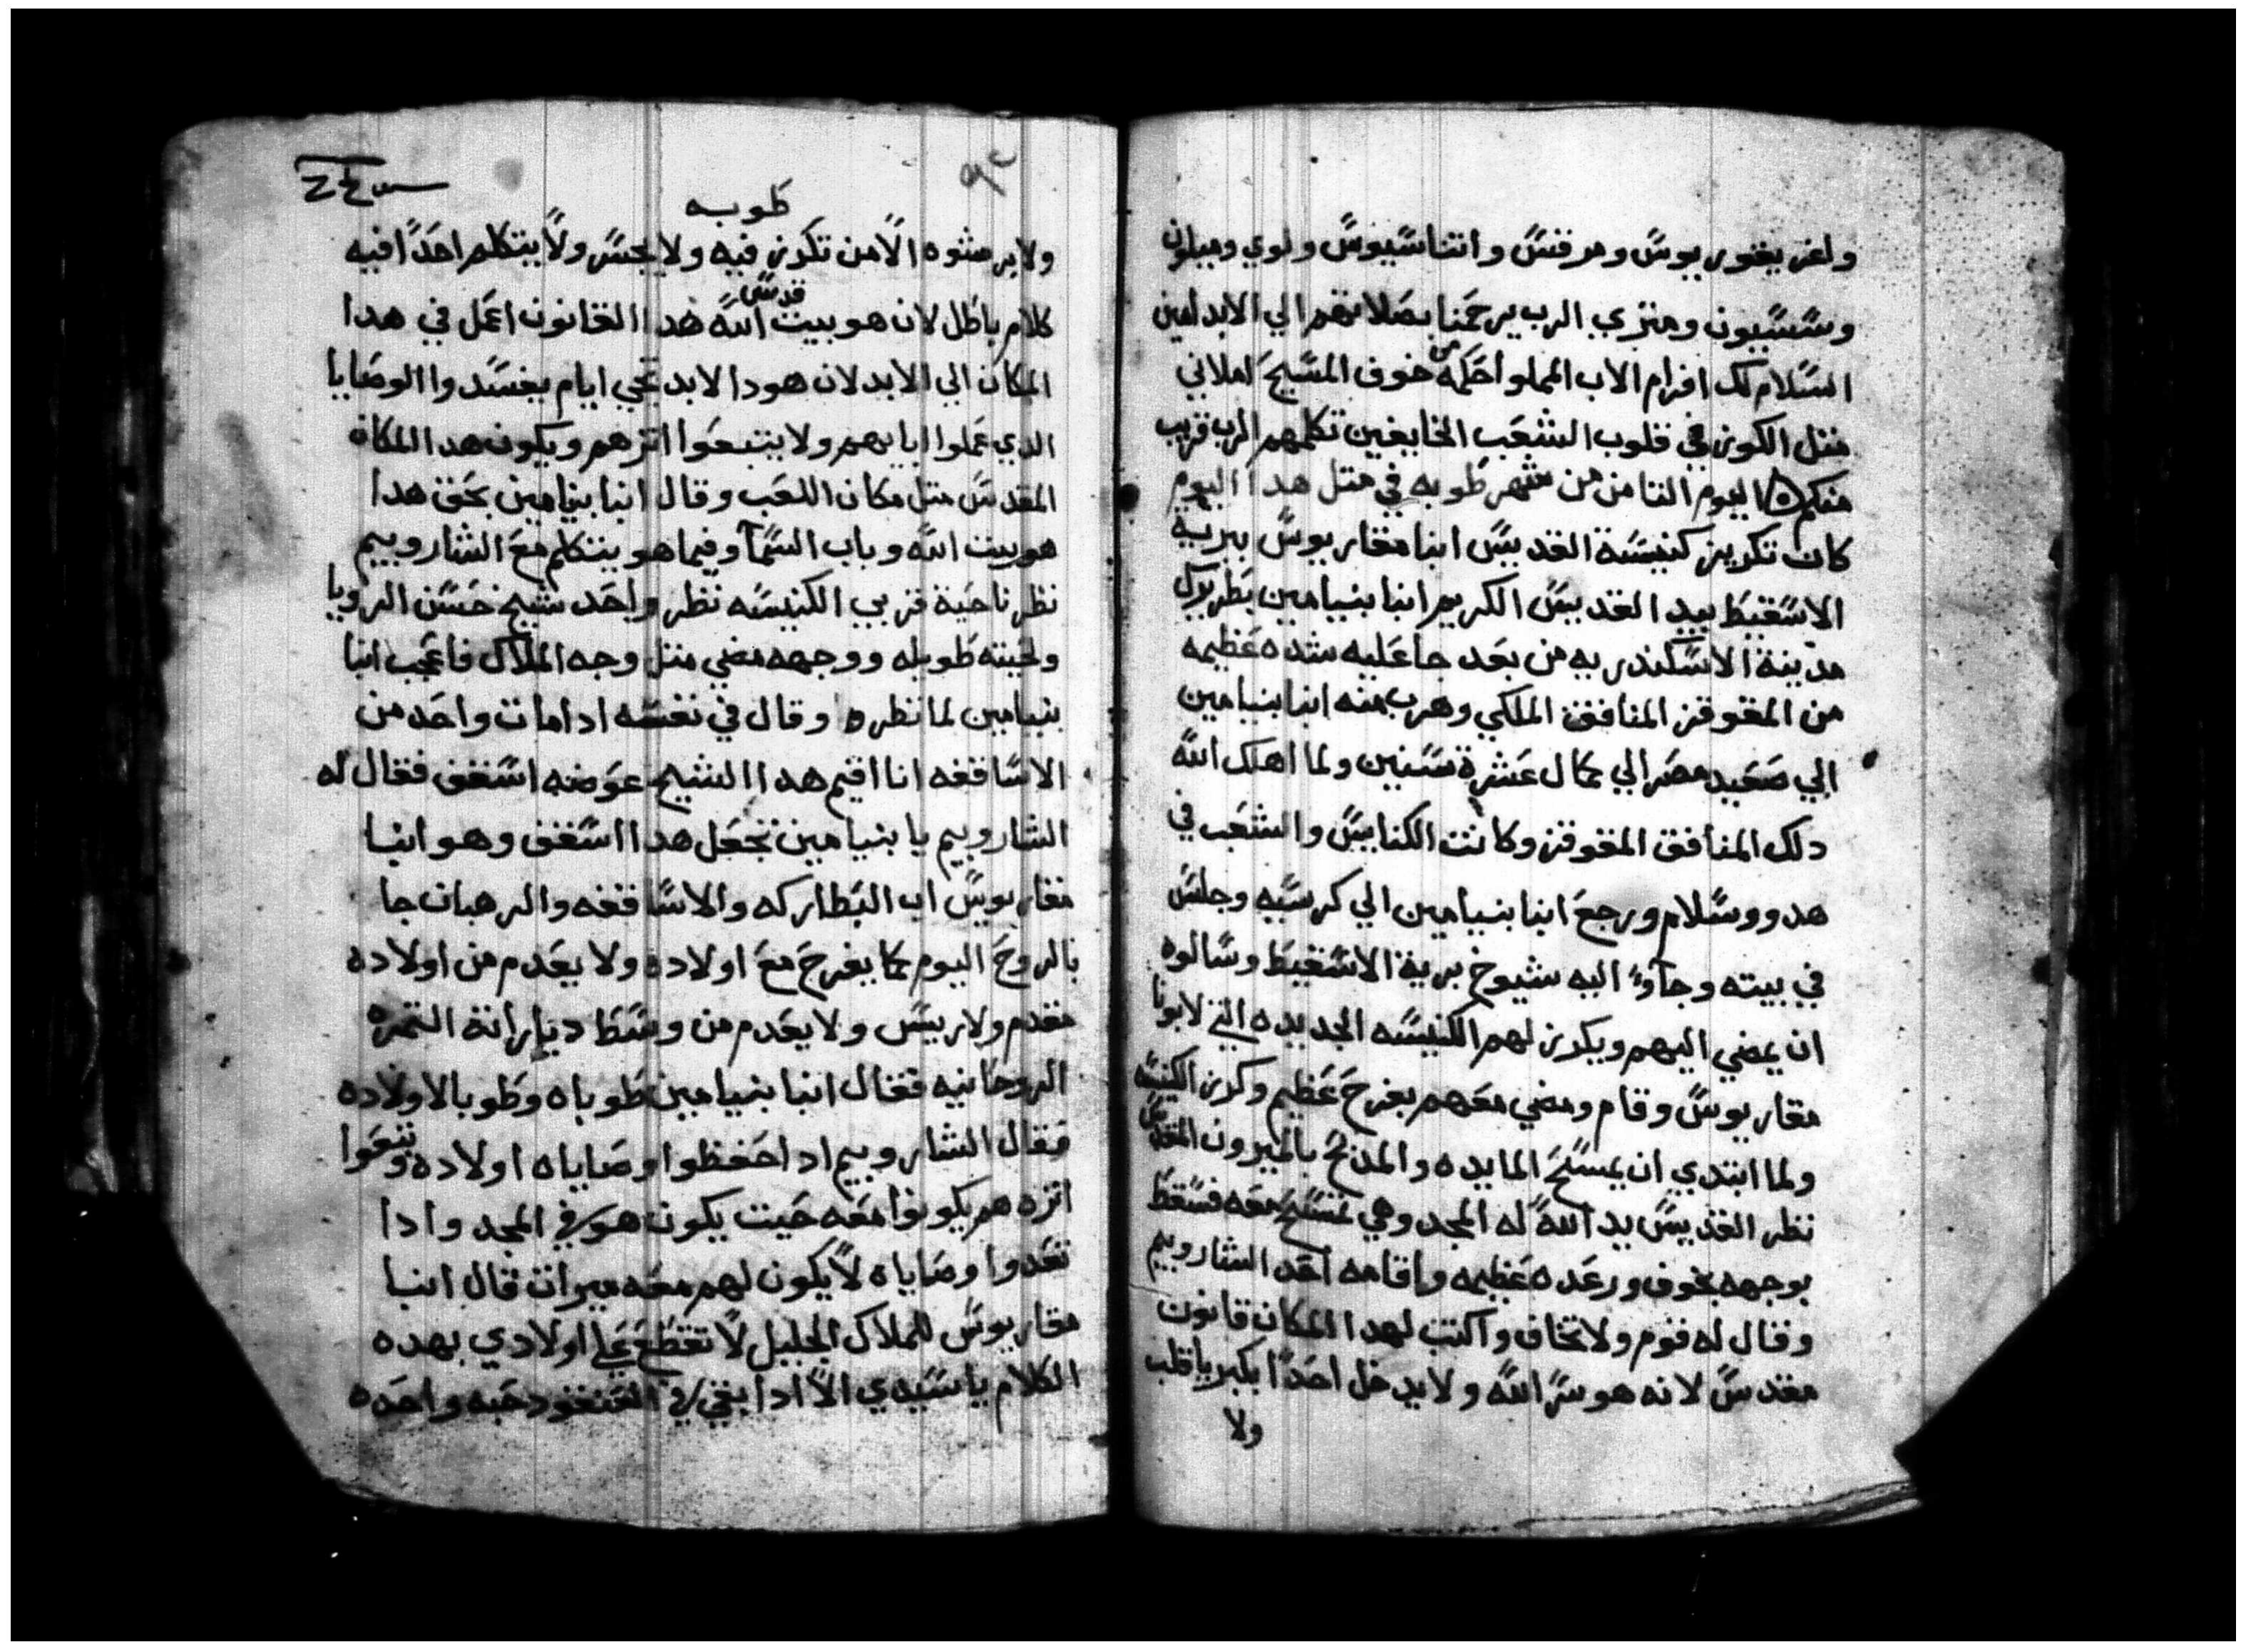 واغريغوريوس ومرقس واتناسيوس ولوي وميلون
وسسيون ومتري الرب يرحمنا بصلاتهم الي الابد امين
السلام لك افرام الاب المملوا حكمه من خوف المسيح املاني
متل الكوز في قلوب الشعب الخايفين تكلمهم الرب قريب
منكم ه اليوم التامن من شهر طوبه في متل هدا اليوم
كان تكريز كنيسة القديس ابنا مقاريوس ببرية
الاسقيط بيد القديس الكريم انبا بنيامين بطريرك
مدينة الاسكندريه من بعد جا عليه شده عظيمه
من المقوقز المنافق الملكي وهرب منه انبا بنيامين
الي صعيد مصر الي كمال عشرة سنين ولما اهلك الله
دلك المنافق المقوقز وكانت الكنايس والشعب في
هدوو وسلام ورجع ابنا بنيامين الي كرسيه وجلس
في بيته وجآوا اليه شيوخ برية الاسقيط وسالوه
ان يمضي اليهم ويكرز لهم الكنيسه الجديده التي لابونا
مقاريوس وقام ومضي معهم بفرح عظيم وكرز الكنيسه
ولما ابتدي ان يمسح المايده والمدبح بالميرون المقدس
نظر القديس يد الله له المجد وهي تمسح معه فسقط
بوجهه بخوف ورعده عظيمه واقامه احد الشاروبيم
وقال له قوم ولا تخاف واكتب لهدا المكان قانون
مقدس لانه هو سر الله ولا يدخل احدا بكبريا قلب
ولا
٩٢
طوبه
ولا برشوه الا من تكرز فيه ولا يجس ولا يتكلم احدا فيه
كلام باطل لان هو بيت قدس الله هدا القانون اعمل في هدا
المكان الي الابد لان هودا الابد تجي ايام يفسدوا الوصايا
الدي عملوا ابايهم ولا يتبعوا اترهم ويكون هدا المكان
المقدس متل مكان اللعب وقال انبا بنيامين بحق هدا
هو بيت الله وباب السما وفيما هو يتكلم مع الشاروبيم
نظر ناحية غربي الكنيسه نظر واحد شيخ حسن الرويا
ولحيته طويله ووجهه مضي متل وجه الملاك فاعجب انبا
بنيامين لما نظره وقال في نفسه ادا مات واحد من
الاساقفه انا اقيم هدا الشيخ عوضه اسقف فقال له
الشاروبيم يا بنيامين تجعل هدا اسقف وهو انبا
مقاريوس اب البطاركه والاساقفه والرهبان جا
بالروح اليوم كما يفرح مع اولاده ولا يعدم من اولاده
مقدم ولا ريس ولا يعدم من وسط دياراته التمره
الروحانيه فقال انبا بنيامين طوباه وطوبا لاولاده
فقال الشاروبيم ادا حفظوا وصاياه اولاده وتبعوا
اتره هم يكونوا معه حيت يكون هو في المجد وادا
تعدوا وصاياه لا يكون لهم معه ميرات قال انبا
مقاريوس للملاك الجليل لا تقطع علي اولادي بهده
الكلام يا سيدي الا ادا بقي في العنقود حبه واحده